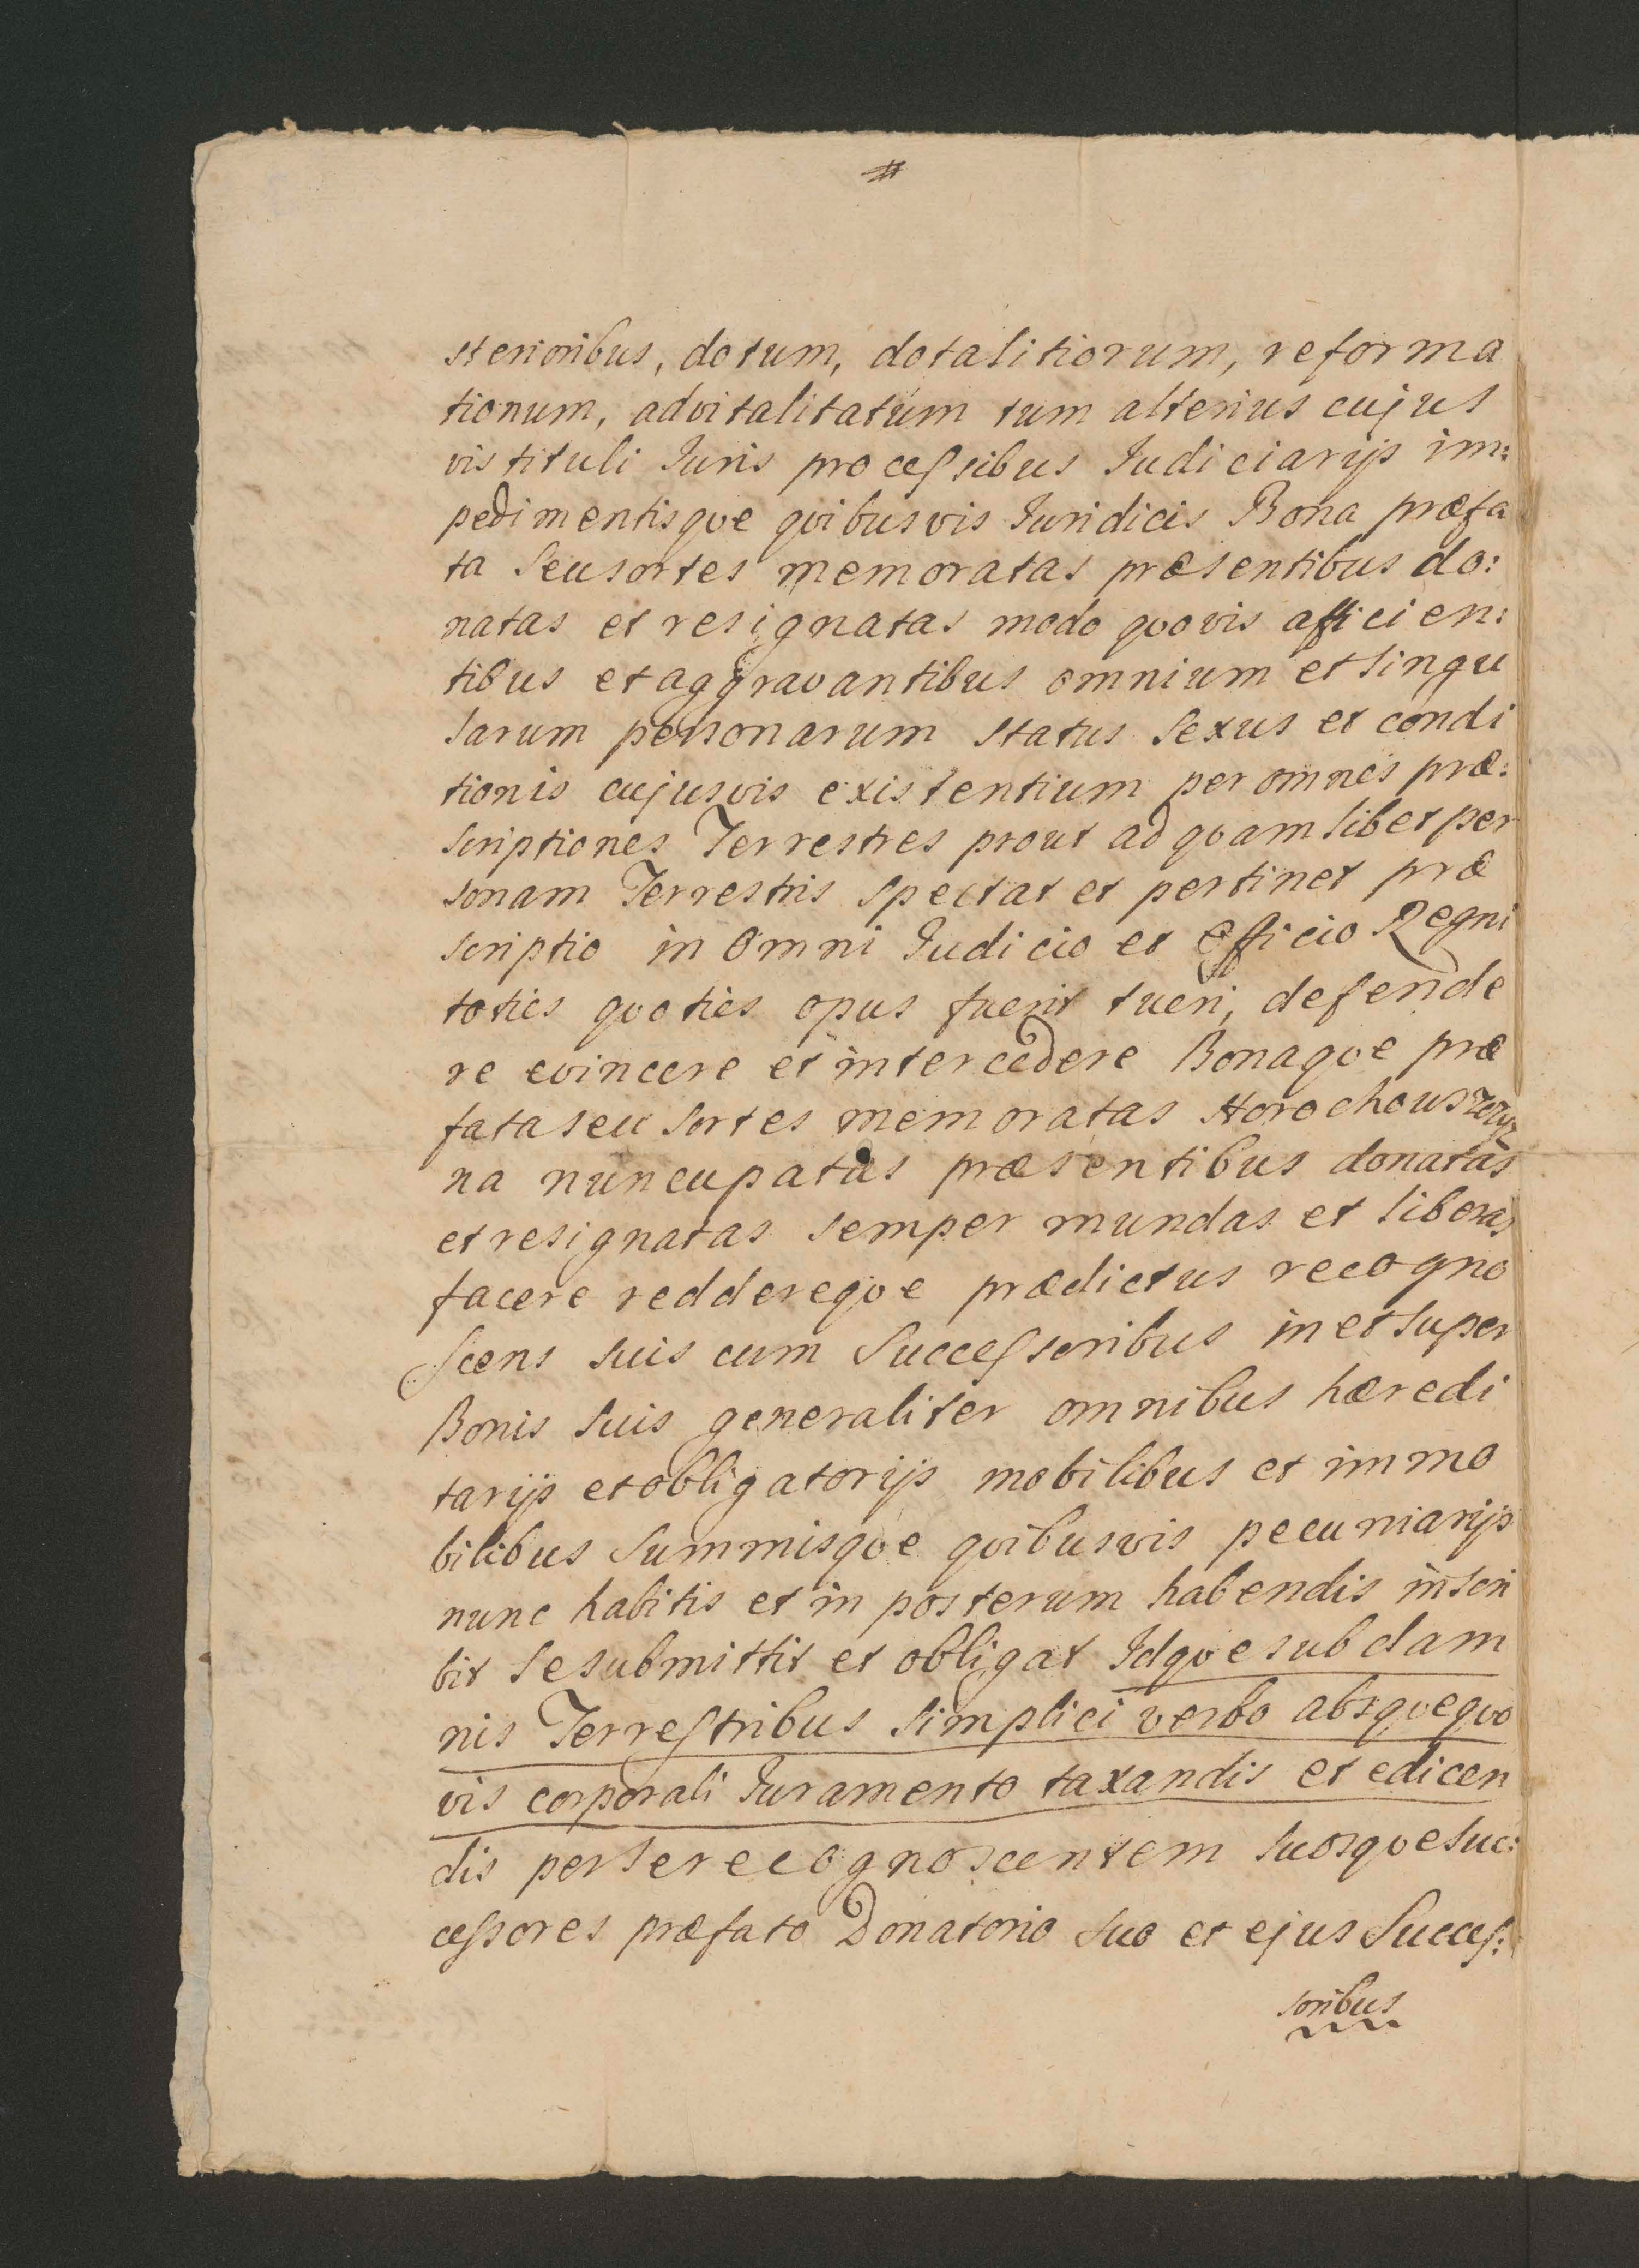 #
sterioribus, dotum, dotalitiorum, reforma
tionum, advitalitatum tum alterius cujus
vis tituli Iuris processibus Iudiciarijs im:
pedimentisque quibusvis Iuridicis Bona præfa
ta seu sortes memoratas præsentibus do:
natas et resignatas modo quovis afficien:
tibus et aggravantibus omnium et singu
larum personarum status sexus et condi
tionis cujusvis existentium per omnes præ:
scriptiones Terrestres prout ad quamlibet per
sonam Terrestris spectat et pertinet præ
scriptio in omni Iudicio et officio Regni
toties quoties opus fuerit tueri, defende
re evincere et intercedere Bonaque præ
fata seu sortes memoratas
na nuncupatas præsentibus donatas
et resignatas semper mundas et liberas
facere reddereque prædictus recogno
scens suis cum successoribus in et super
Bonis suis generaliter omnibus hæredi
tarijs et obligatorijs mobilibus et immo
bilibus summisque quibusvis pecuniarijs
nunc habitis et in posterum habendis inscri
bit se submittit et obligat Idque sub dam
nis Terrestribus simplici verbo absque quo
vis corporali Iuramento taxandis et edicen
dis per se recognoscentem suosque suc:
cessores præfato Donatorio suo et ejus Succes:
soribus